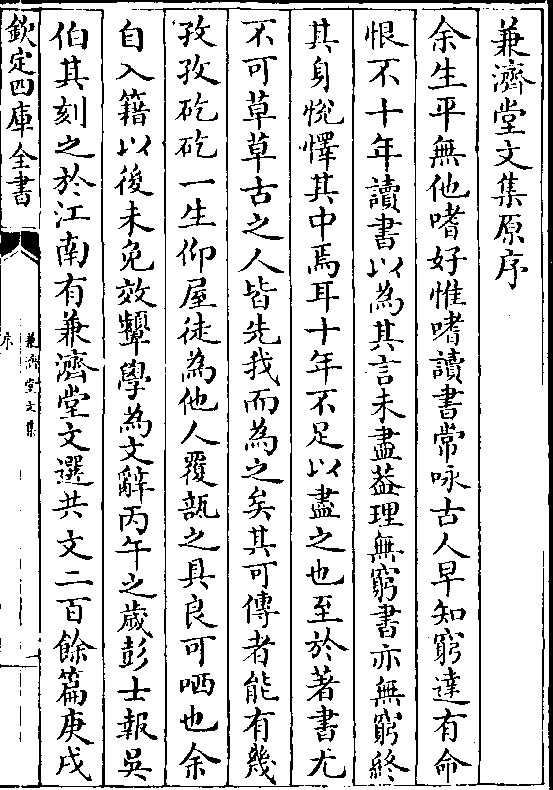 兼濟堂文集原序
余生平無他嗜好惟嗜讀書常咏古人早知窮達有命
恨不十年讀書以為其言未盡葢理無窮書亦無窮終
其身恱懌其中焉耳十年不足以盡之也至於著書尤
不可草草古之人皆先我而為之矣其可傳者能有幾
孜孜矻矻一生仰屋徒為他人覆瓿之具良可哂也余
自入籍以後未免效颦學為文辭丙午之歲彭士報吳
伯其刻之於江南有兼濟堂文選共文二百餘篇庚戌
欽定四庫全書
兼濟堂文集
序